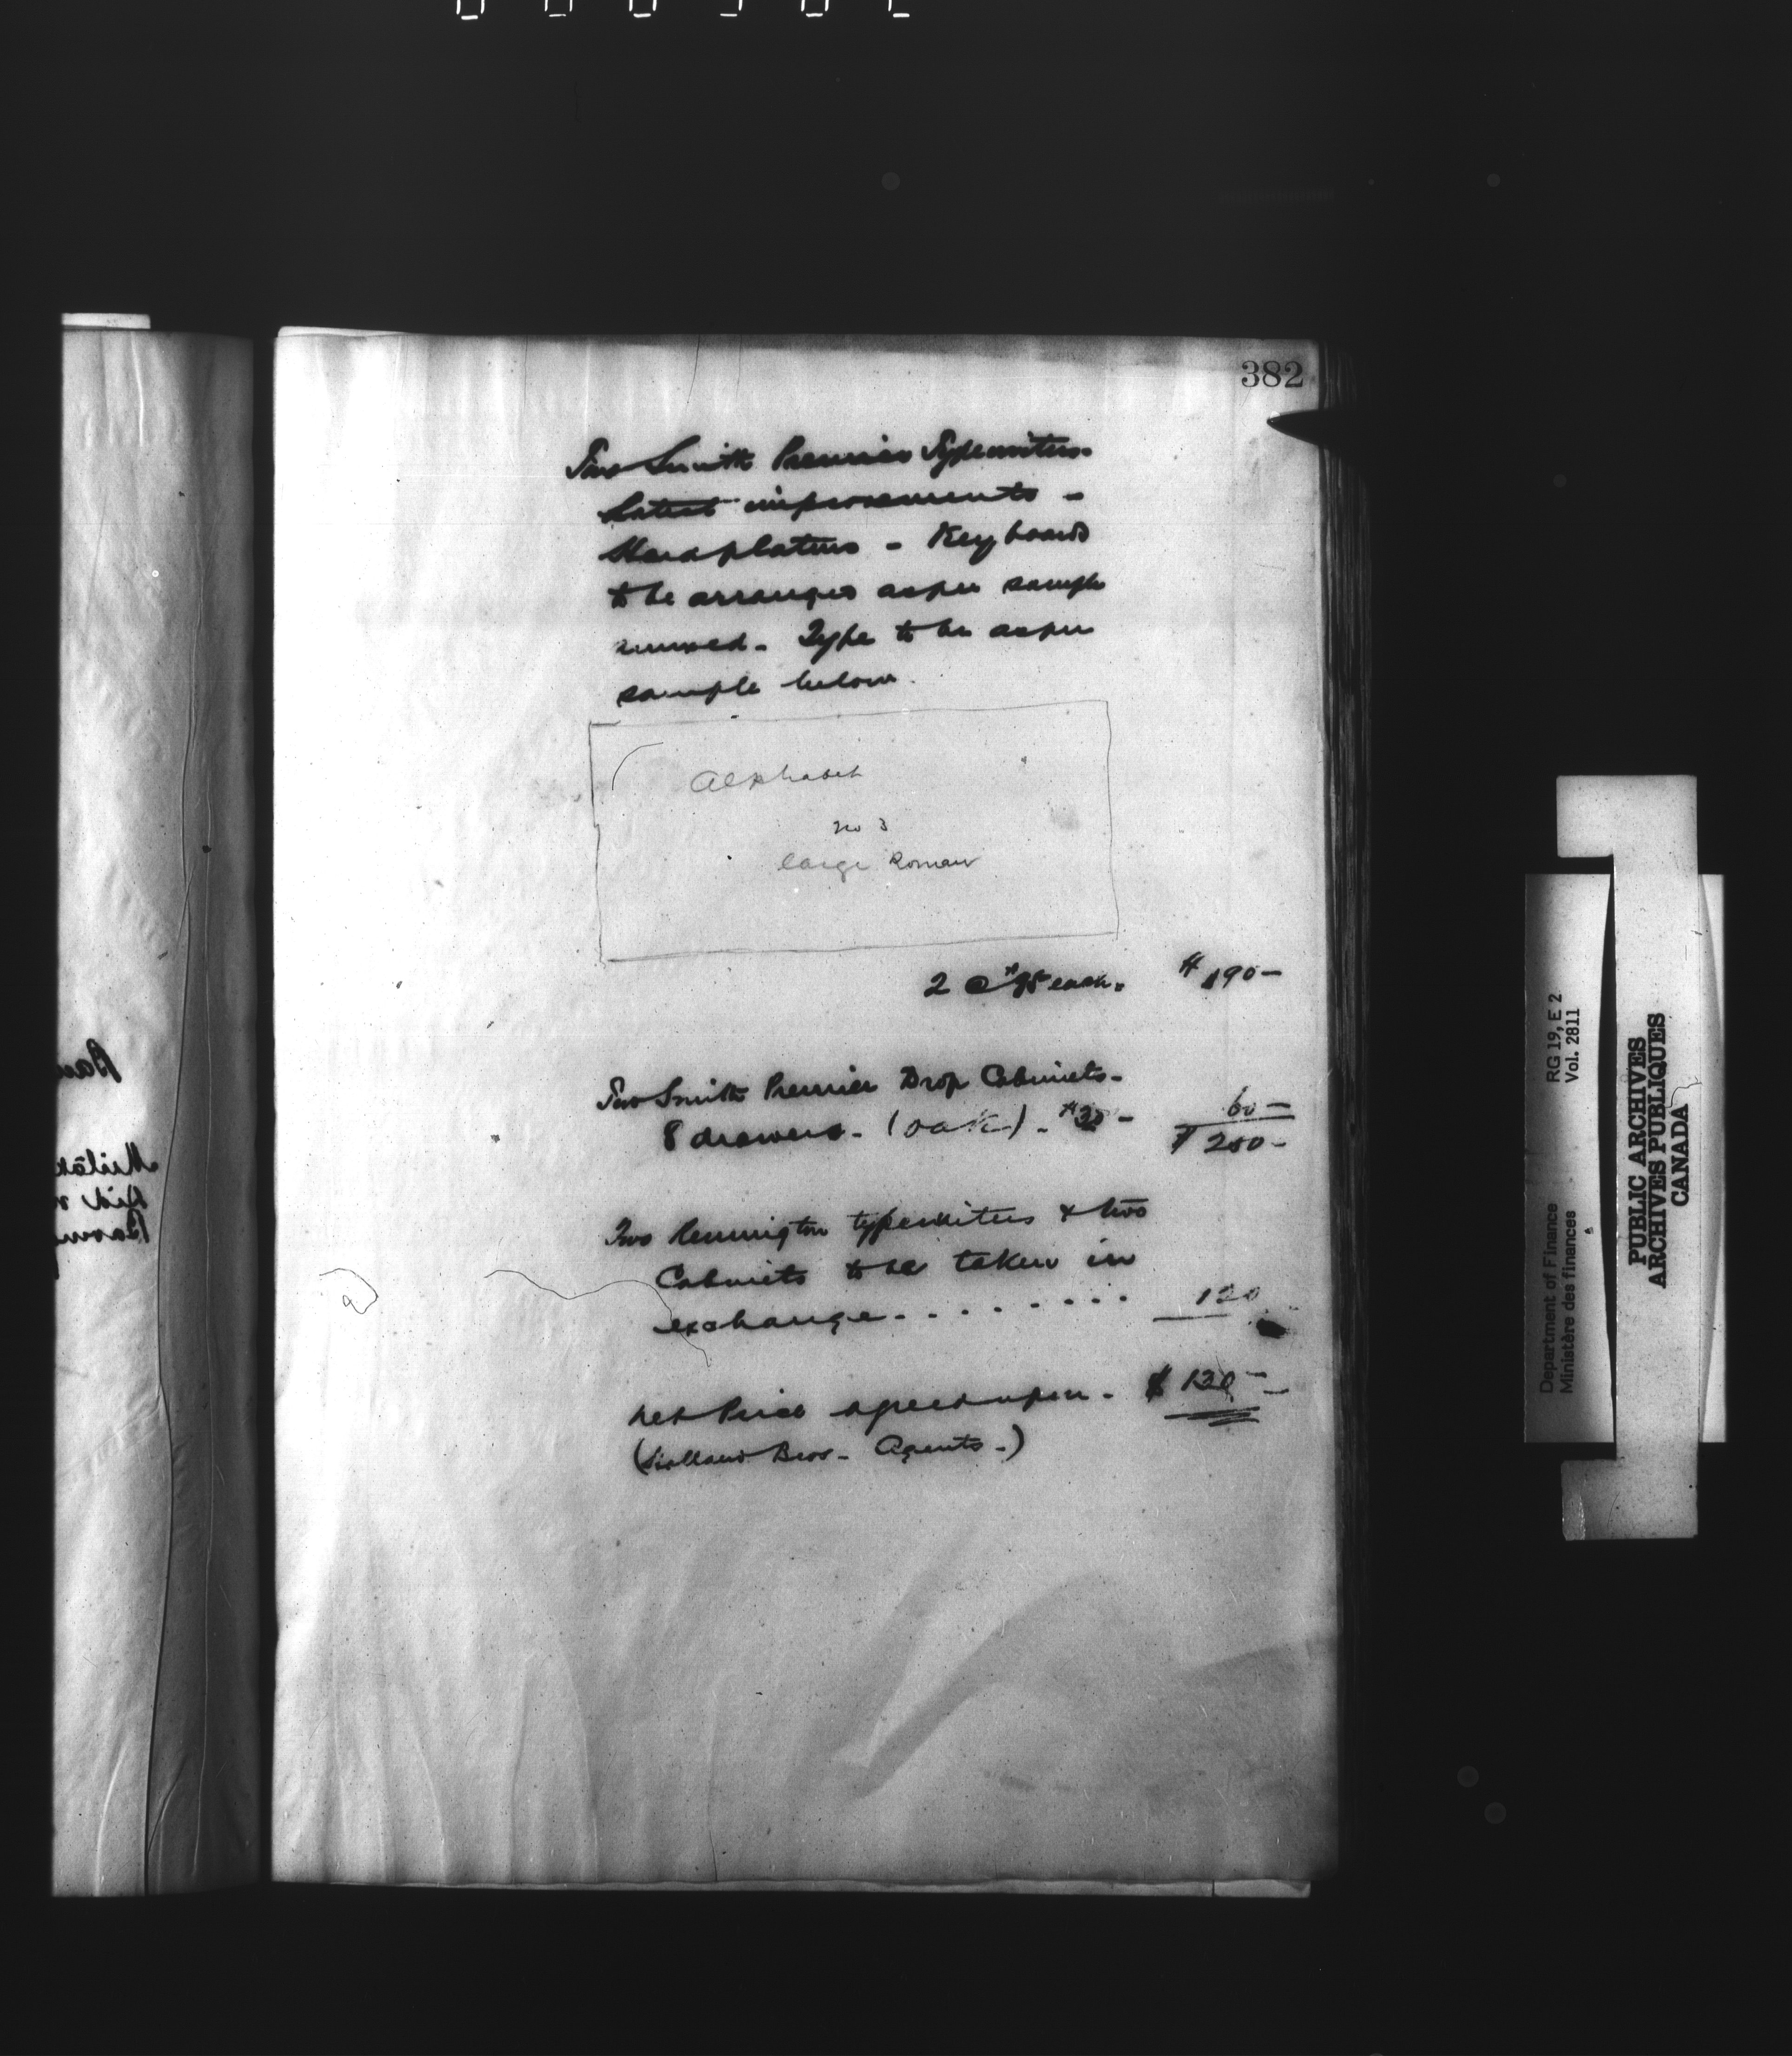 382
Two Smith Premier Typewriters.
Latest improvements -
Hard platens - Keyboards
to be arranged as per sample
annexed - Type to be as per
sample below.
Alphabet
no 3
large Roman
2 @ $95 each. $190-
Two Smith Premier Drop Cabinets-
8 drawers - (oak) - $30 - 60-
$250-
Two Remington typewriters & two
Cabinets to be taken in
exchange - . . . . . . . 120
Net Price agreed upon - $130-
(Holland Bros - Agents -)
RG 19, E 2
Vol. 2811
Department of Finance
Ministère des finances
PUBLIC ARCHIVES
ARCHIVES PUBLIQUES
CANADA